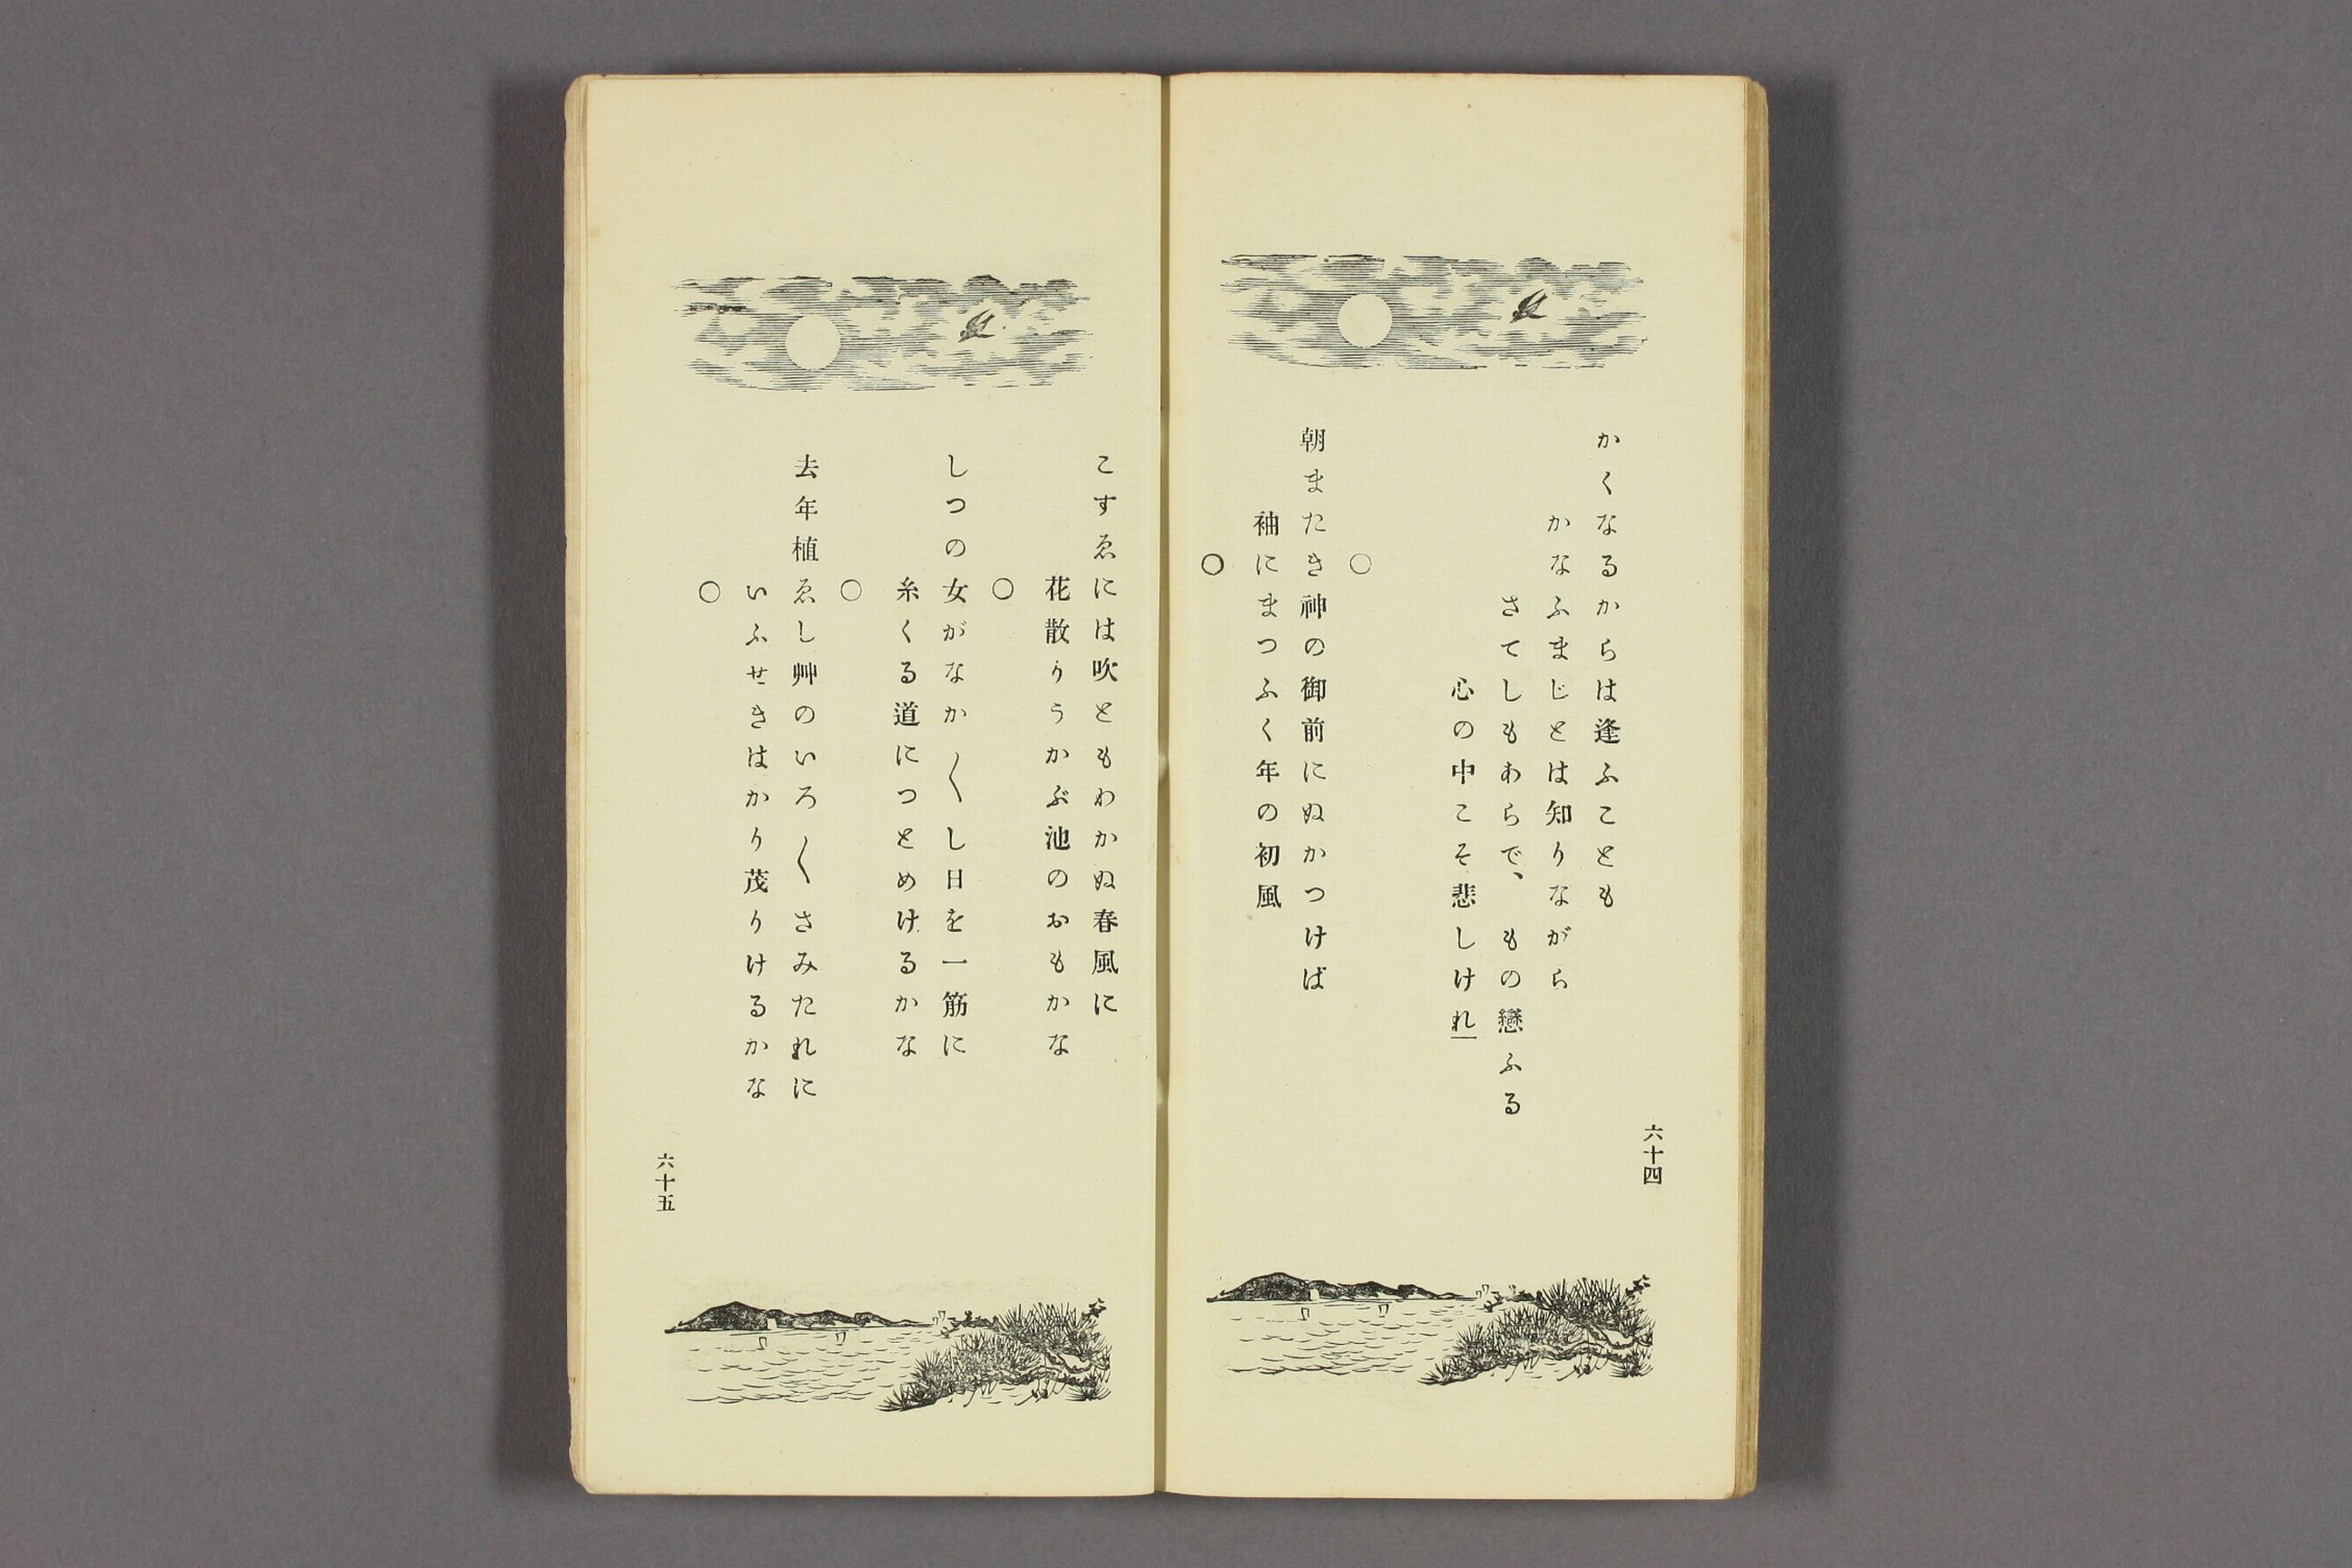 かくなるからは逢ふことも
かなふまじとは知りながら
さてしもあらで、もの戀ふる
心の中こそ悲しけれ
○
朝またき神の御前にぬかつけば
袖にまつふく年の初風
○
六十四
こすゑには吹ともわかぬ春風に
花散りうかぶ池のおもかな
○
しつの女がなか〱し日を一筋に
糸くる道につとめけるかな
○
去年植ゑし艸のいろ〱さみたれに
いふせきはかり茂りけるかな
○
六十五